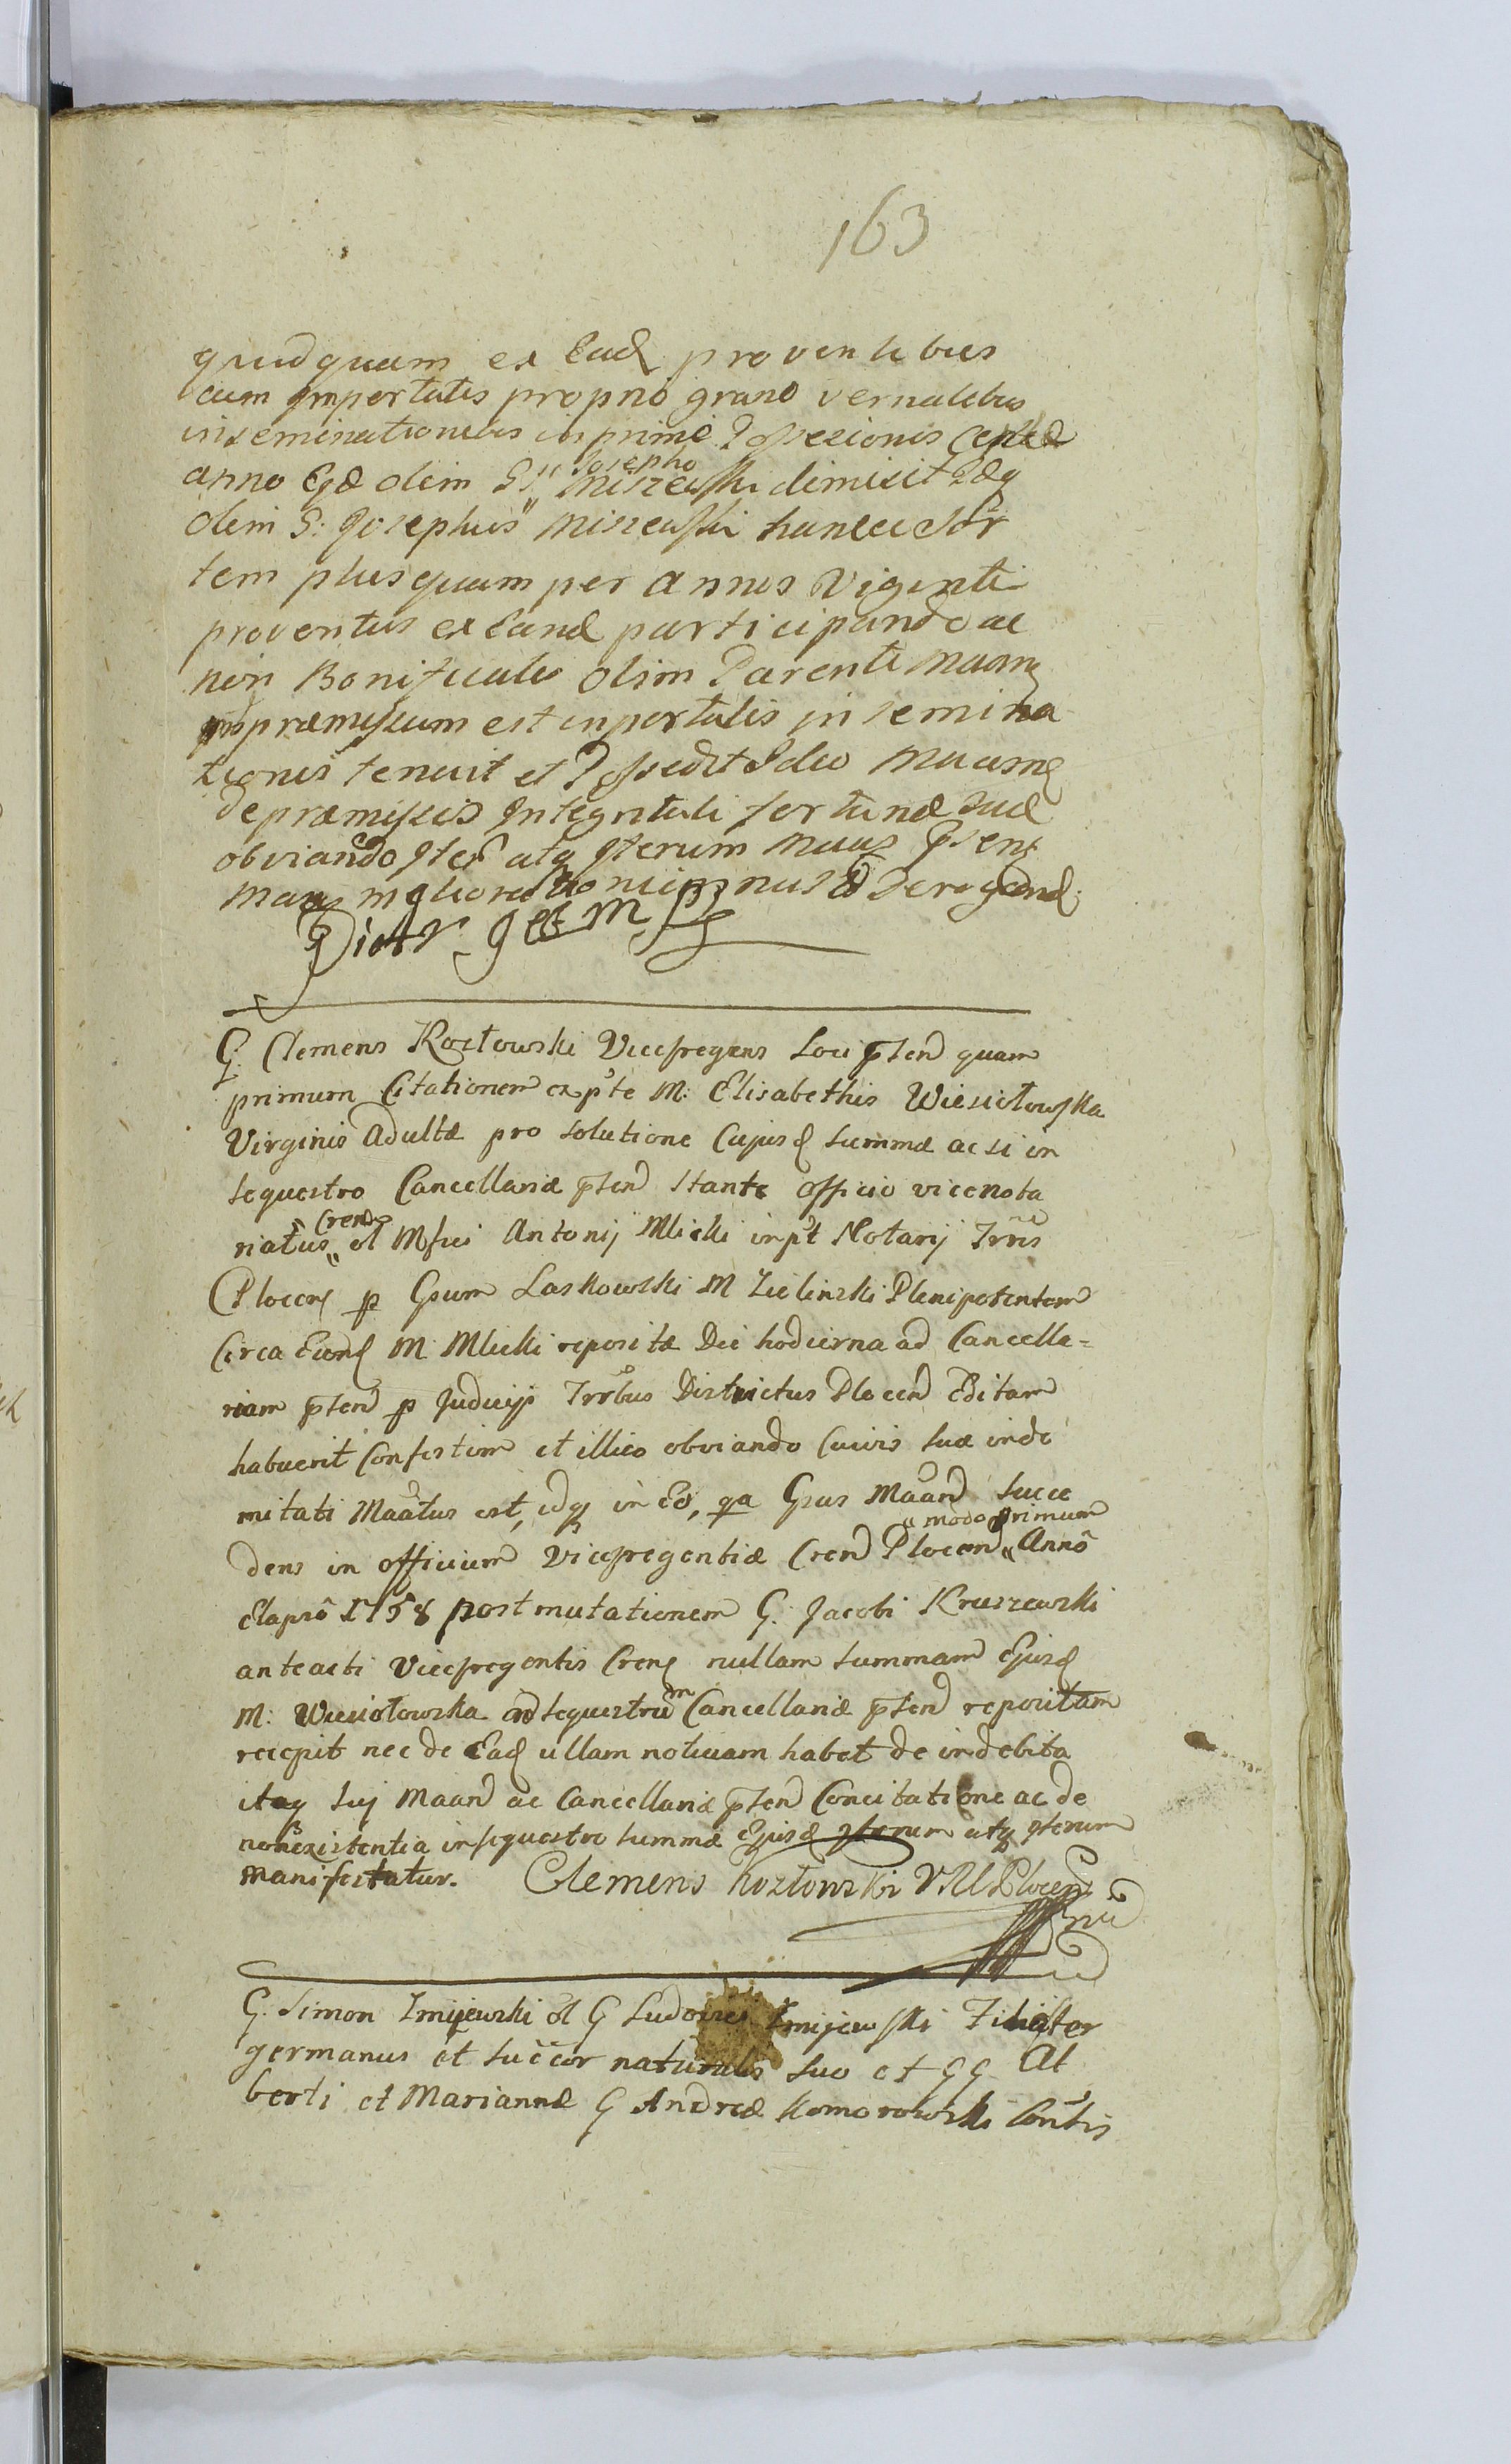 163
quidquam ex Ead proventibus
cum importatis proprio grano vernalibus
inseminationibus in primo Possesionis
anno Eqd olim G. "Josepho" Miszewski dimisit Idq
olim G: Josephus Miszewski hancce Sor
tem plusquam per annos Viginti
proventus ex Eand participando ac
non Bonificatis olim Parenti Maan
præmissum est inportatis in semina
tionis tenuit et Possedit Ideo Maans
de præmissis Integritati fortunæ suæ
obviando Iter atq Iterum Maas Psens
Maas meliorationi
G: Clemens Kozłowski Vicepregens Loci psten quam
primum Citationem ex pte M: Elisabethis Wiesiołowska
Virginis Adultæ pro solutione Cujusd summæ ac si in
sequestro Cancellariæ psten stante officio vicenota
riatus "Cren ol Mfici Antonij Mlicki inpt Notarij Trris
Plocen p Gsum Laskowski M Zielinski Plenipotentem
Circa Eund M Mlicki repositæ Die hodierna ad Cancella=
riam psten p Judicijs Trrbus Districtus Plocen Editam
habuerit Confestim et illico obviando Cuivis suæ inde
mitati Maatus est, idq in Eo, qa Gsus Maan succe
dens in officium Vicepregentiæ Cren Plocen "modo primum Anno
Elapso 1758 post mutationem G: Jacobi Kruszewski
anteacti Vicepregentis Cren nullam summam Ejusd
M: Wiesiołowska ad sequestrum Cancellariæ psten repositam
recepit nec de Ead ullam notitiam habet de indebita
itaq sui Maan ac Cancellariæ psten Concitatione ac de
nonexistentia in sequestro summæ Ejusd Iterum atq Iterum
manifestatur. Clemens Kozłowski V R Plocen
mp
G: Simon Zmijewski ol G Ludovici Zmijewski Filius ster
germanus et succor naturalis suo et GG Al
berti et Mariannæ G Andreæ Komorowski Contis